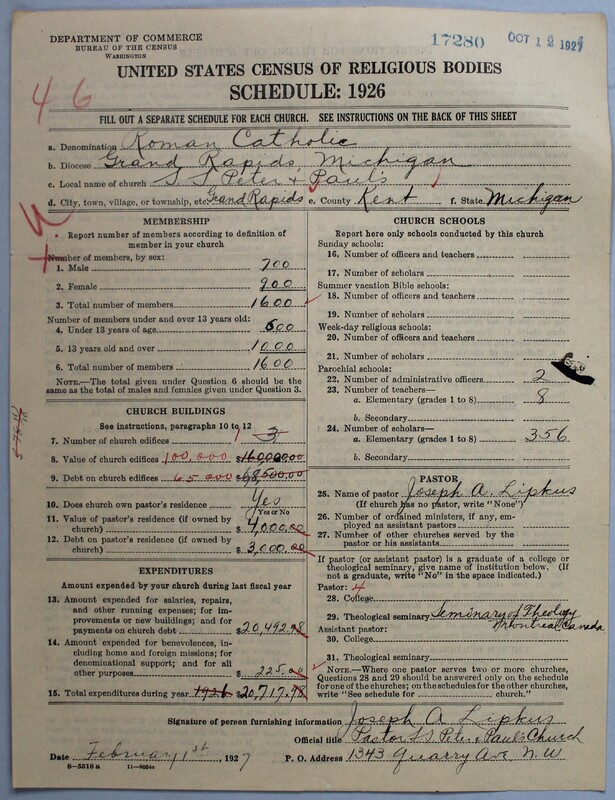 DEPARTMENT OF COMMERCE
BUREAU OF THE CENSUS
WASHINGTON
17280 OCT 12 1927
UNITED STATES CENSUS OF RELIGIOUS BODIES
SCHEDULE: 1926
4 6
FILL OUT A SEPARATE SCHEDULE FOR EACH CHURCH. SEE INSTRUCTIONS ON THE BACK OF THIS SHEET
a. Denomination Roman Catholic
b. Diocese Grand Rapids Michigan
c. Local name of church S S Peter & Paul's
d. City, town, village, or township, etc. Grand Rapids e. County Kent f. State Michigan
MEMBERSHIP
Report number of members according to definition of
member in your church
Number of members, by sex:
1. Male 700
2. Female 900
3. Total number of members 1600
Number of members under and over 13 years old:
4. Under 13 years of age 600
5. 13 years old and over 1000
6. Total number of members 1600
NOTE.—The total given under Question 6 should be the
same as the total of males and females given under Question 3.
CHURCH BUILDINGS
See instructions, paragraphs 10 to 12
7. Number of church edifices 1 3
8. Value of church edifices 100,000 $
9. Debt on church edifices 65,000 $68,500.00
10. Does church own pastor's residence Yes
Yes or No
11. Value of pastor's residence (if owned by
church) $4,000.00
12. Debt on pastor's residence (if owned by
church) $3,000.00
EXPENDITURES
Amount expended by your church during last fiscal year
13. Amount expended for salaries, repairs,
and other running expenses; for im-
provements or new buildings; and for
payments on church debt $20,492.98
14. Amount expended for benevolences, in-
cluding home and foreign missions; for
denominational support; and for all
other purposes 225.00
15. Total expenditures during year 1926 $20,717.98
CHURCH SCHOOLS
Report here only schools conducted by this church
Sunday schools:
16. Number of officers and teachers
17. Number of scholars
Summer vacation Bible schools:
18. Number of officers and teachers
19. Number of scholars
Week-day religious schools:
20. Number of officers and teachers
21. Number of scholars
Parochial schools:
22. Number of administrative officers 2
23. Number of teachers—
a. Elementary (grades 1 to 8) 8
b. Secondary
24. Number of scholars—
a. Elementary (grades 1 to 8) 356
b. Secondary
PASTOR
25. Name of pastor Joseph A. Lipkus
(If church has no pastor, write "None")
26. Number of ordained ministers, if any, em-
ployed as assistant pastors
27. Number of other churches served by the
pastor or his assistants
If pastor (or assistant pastor) is a graduate of a college or
theological seminary, give name of institution below. (If
not a graduate, write "No" in the space indicated.)
Pastor: 4
28. College
29. Theological seminary Seminary of Theology
Montreal Canada
Assistant pastor:
30. College
31. Theological seminary
NOTE.—Where one pastor serves two or more churches,
Questions 28 and 29 should be answered only on the schedule
for one of the churches; on the schedules for the other churches,
write "See schedule for church."
Signature of person furnishing information Joseph A Lipkus
Official title Pastor S S Peter & Pauls Church
Date February 1st, 1927 P. O. Address 1343 Quarry Ave N. W
8—5518 a 11—9054a